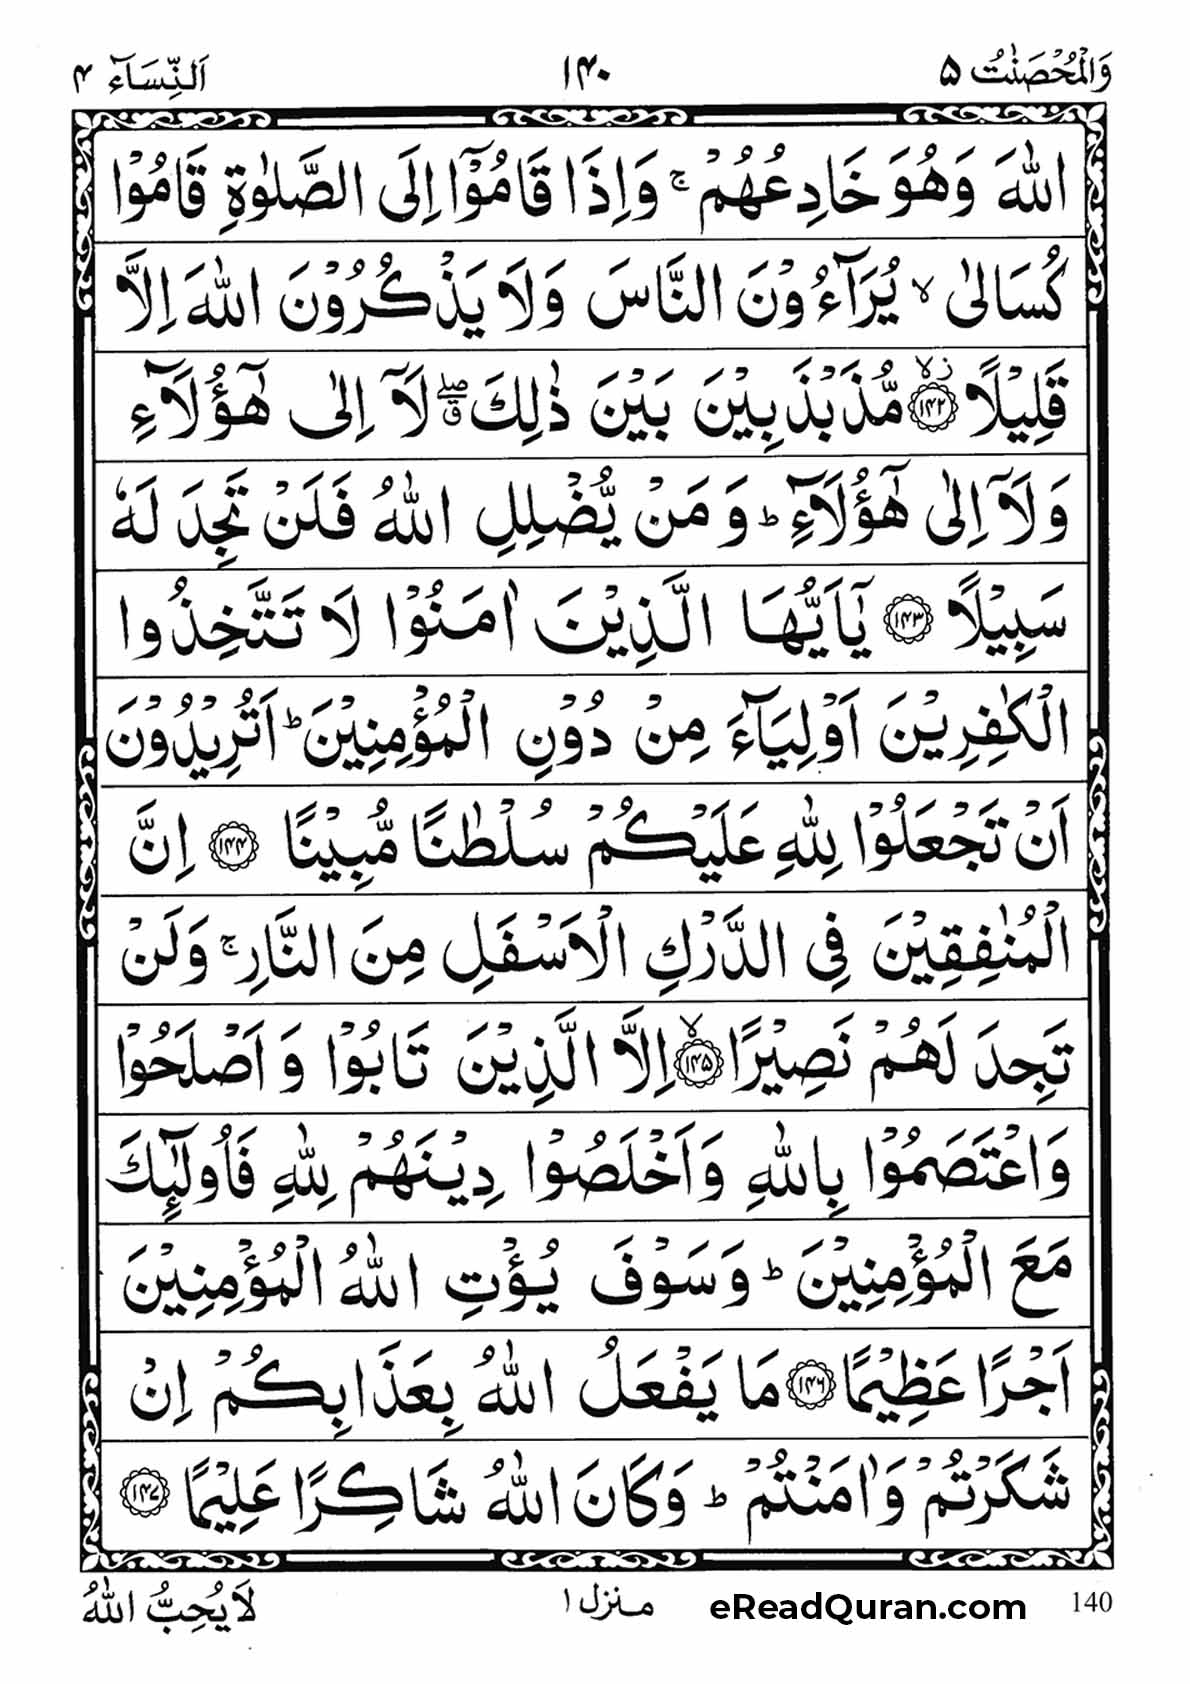 وَالْمُحْصَنٰتُ ۵ ۱۴۰ اَلنِّسَآء ۴
اللّٰهَ وَهُوَ خَادِعُهُمْ ۚ وَاِذَا قَامُوْۤا اِلَى الصَّلٰوةِ قَامُوْا
كُسَالٰى ۙ يُرَآءُوْنَ النَّاسَ وَلَا يَذْكُرُوْنَ اللّٰهَ اِلَّا
قَلِيْلًا ﴿۱۴۲﴾ مُّذَبْذَبِيْنَ بَيْنَ ذٰلِكَ ۖ ق لَاۤ اِلٰى هٰۤؤُلَآءِ
وَلَاۤ اِلٰى هٰۤؤُلَآءِ ؕ وَمَنْ يُّضْلِلِ اللّٰهُ فَلَنْ تَجِدَ لَهٗ
سَبِيْلًا ﴿۱۴۳﴾ يٰۤاَيُّهَا الَّذِيْنَ اٰمَنُوْا لَا تَتَّخِذُوا
الْكٰفِرِيْنَ اَوْلِيَآءَ مِنْ دُوْنِ الْمُؤْمِنِيْنَ ؕ اَتُرِيْدُوْنَ
اَنْ تَجْعَلُوْا لِلّٰهِ عَلَيْكُمْ سُلْطٰنًا مُّبِيْنًا ﴿۱۴۴﴾ اِنَّ
الْمُنٰفِقِيْنَ فِى الدَّرْكِ الْاَسْفَلِ مِنَ النَّارِ ۚ وَلَنْ
تَجِدَ لَهُمْ نَصِيْرًا ﴿۱۴۵﴾ ۙ اِلَّا الَّذِيْنَ تَابُوْا وَاَصْلَحُوْا
وَاعْتَصَمُوْا بِاللّٰهِ وَاَخْلَصُوْا دِيْنَهُمْ لِلّٰهِ فَاُولٰٓئِكَ
مَعَ الْمُؤْمِنِيْنَ ؕ وَسَوْفَ يُؤْتِ اللّٰهُ الْمُؤْمِنِيْنَ
اَجْرًا عَظِيْمًا ﴿۱۴۶﴾ مَا يَفْعَلُ اللّٰهُ بِعَذَابِكُمْ اِنْ
شَكَرْتُمْ وَاٰمَنْتُمْ ؕ وَكَانَ اللّٰهُ شَاكِرًا عَلِيْمًا ﴿۱۴۷﴾
140 eReadQuran.com منزل ۱ لَا يُحِبُّ اللّٰهُ